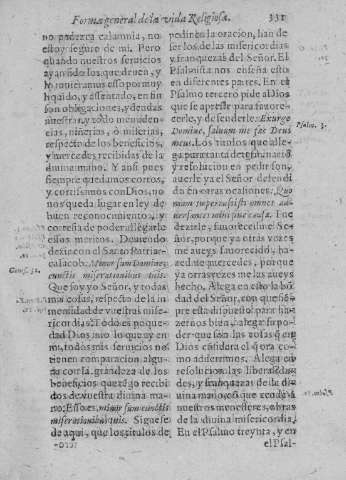 Forma general de la vida Religiosa. 331
no padezca calumnia, no
estoy seguro de mi. Pero
quando nuestros servicios
ayan sido los que deuen, y
lo tuuieramos esso por muy
liquido, y assentado, en fin
son obligaciones, y deudas
nuestras, y todo menuden-
cias, niñerias, ò miserias,
respecto de los beneficios,
y mercedes recibidas de la
diuina mano. Y assi pues
siempre quedamos cortos,
y cortissimos con Dios, no
nos queda lugar en ley de
buen reconocimiento, y
cortesia de poder allegarle
essos meritos. Deuiendo
dezir con el Santo Patriar-
ca Iacob. Minor sum Domine,
Genes. 32.
cunctis miserationibus tuis.
Que soy yo Señor, y todas
mis cosas, respeto de la in-
mensidad de vuestras mise-
ricordias? Todo es poque-
dad Dios mio lo que ay en
mi, todos mis servicios no
tienen comparacion algu-
na con la grandeza de los
beneficios que yo he recibi
dos de vuestra diuina ma-
no: Esso es, minor sum cunctis
miserationibus tuis. Siguese
de aqui, que los titulos de
pedir en la oracion, han de
ser los de las misericordias
y franquezas del Señor. El
Psalmista nos enseña esto
en diferentes partes. En el
Psalmo tercero pide a Dios
que se apreste para fauore-
cerle, y defenderle: Exurge
Psalm. 3.
Domine, saluum me fac Deus
meus. Los titulos que alle-
ga para tanta determinació
y resolucion en pedir son,
auerle ya el Señor defendi
do en otras ocasiones: Quo
niam tu percussisti omnes ad-
uersantes mihi sine causa. Fue
dezirle, fauorecedme Se-
ñor, porque ya otras vezes
me aueys fauorecido, ha-
zedme mercedes, porque
ya otras vezes me las aueys
hecho. Alega en esto la bó
dad del Señor, con que siẽ-
pre esta dispuesto para ha-
zernos bien, alega su po-
der: que son las cosas q̃ en
Dios cósidera el q̃ ora co-
mo adferimos. Alega en
resolucion las liberalida-
des, y franquezas de la di-
uina mano, los que ha rendi a
nuestros menesteres, obras
de la diuina misericordia.
En el Psalmo treynta, y en
el Psal-